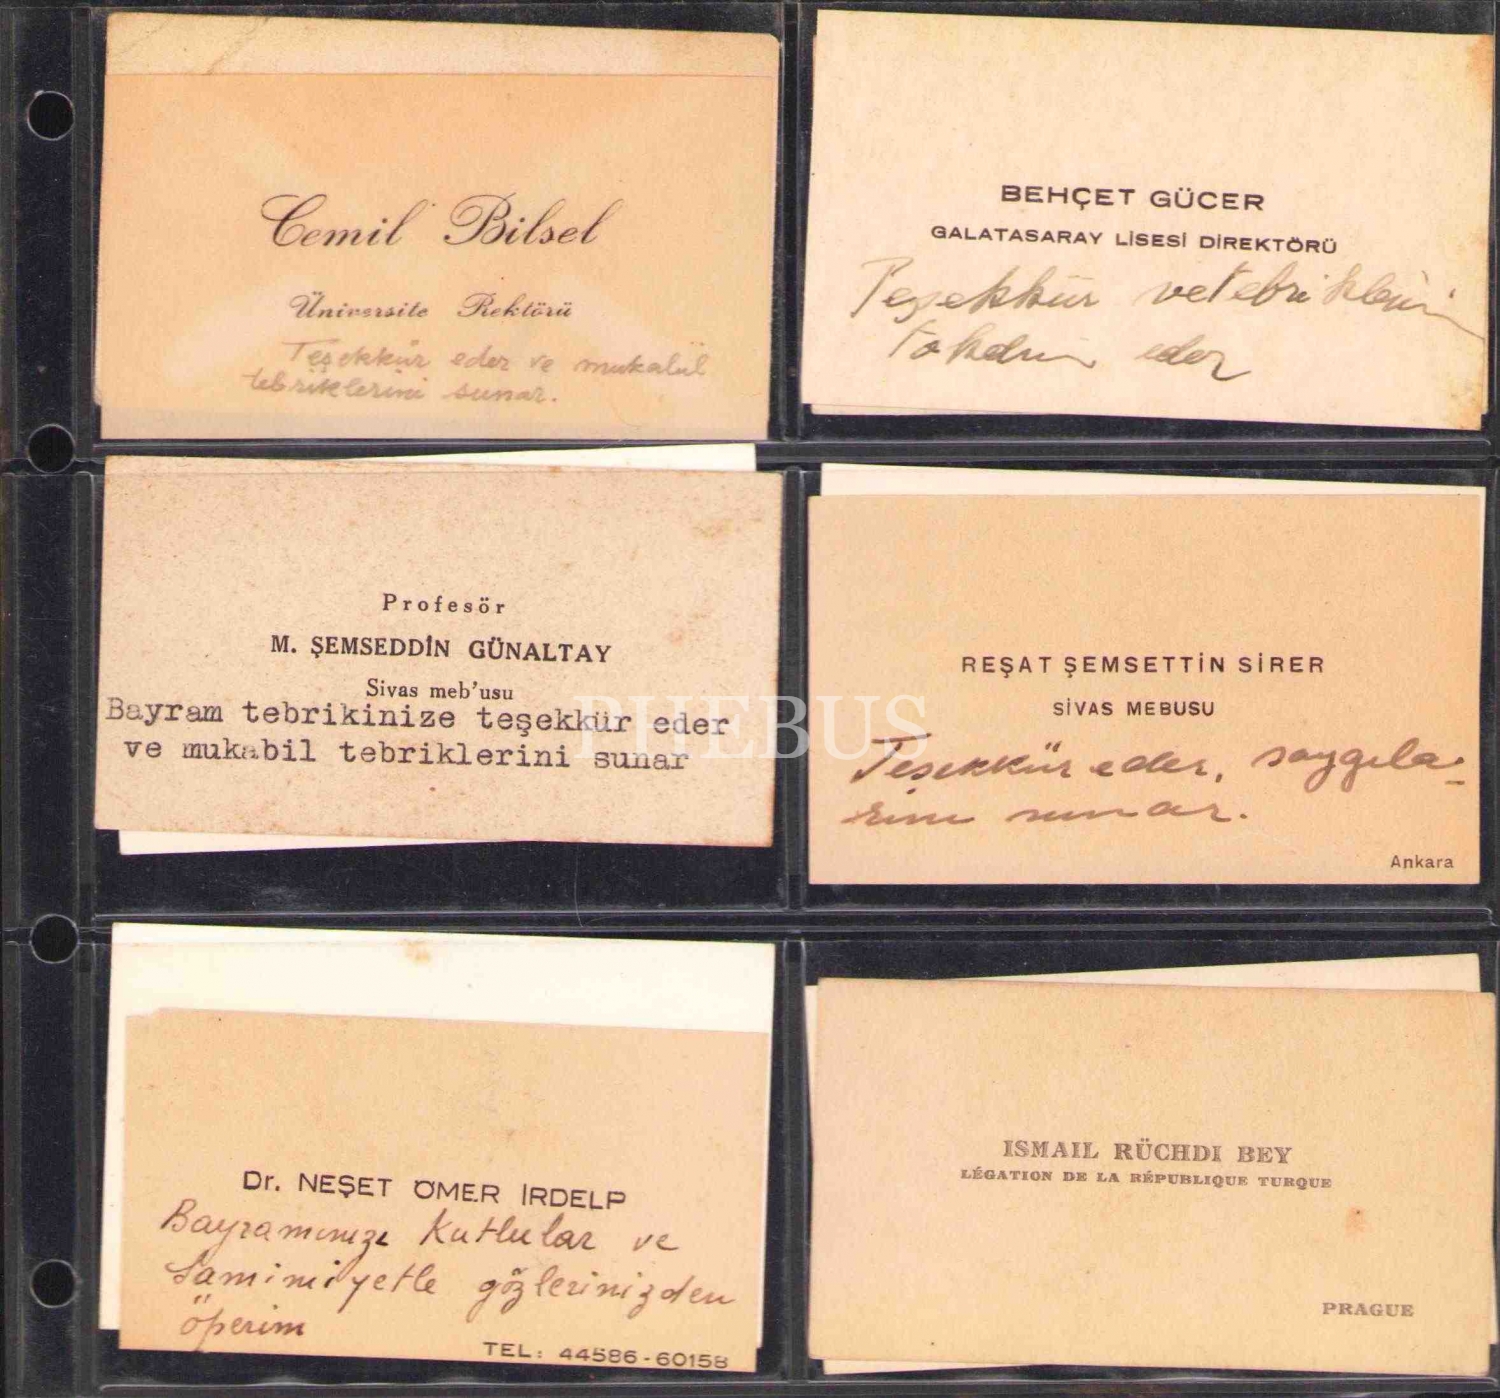 Cemil Bilsel
Üniversite Rektörü
Teşekkür eder ve mukabil
tebriklerini sunar.
BEHÇET GÜCER
GALATASARAY LİSESİ DİREKTÖRÜ
Teşekkür ve tebriklerini
takdim eder
Profesör
M. ŞEMSEDDİN GÜNALTAY
Sivas meb'usu
Bayram tebrikinize teşekkür eder
ve mukabil tebriklerini sunar
REŞAT ŞEMSETTİN SİRER
SİVAS MEBUSU
Teşekkür eder, saygıla-
rını sunar.
Ankara
PHEBUS
Dr. NEŞET ÖMER İRDELP
Bayramınızı Kutlular ve
Samimiyetle gözlerinizden
öperim
TEL: 44586-60158
ISMAIL RÜCHDI BEY
LÉGATION DE LA RÉPUBLIQUE TURQUE
PRAGUE